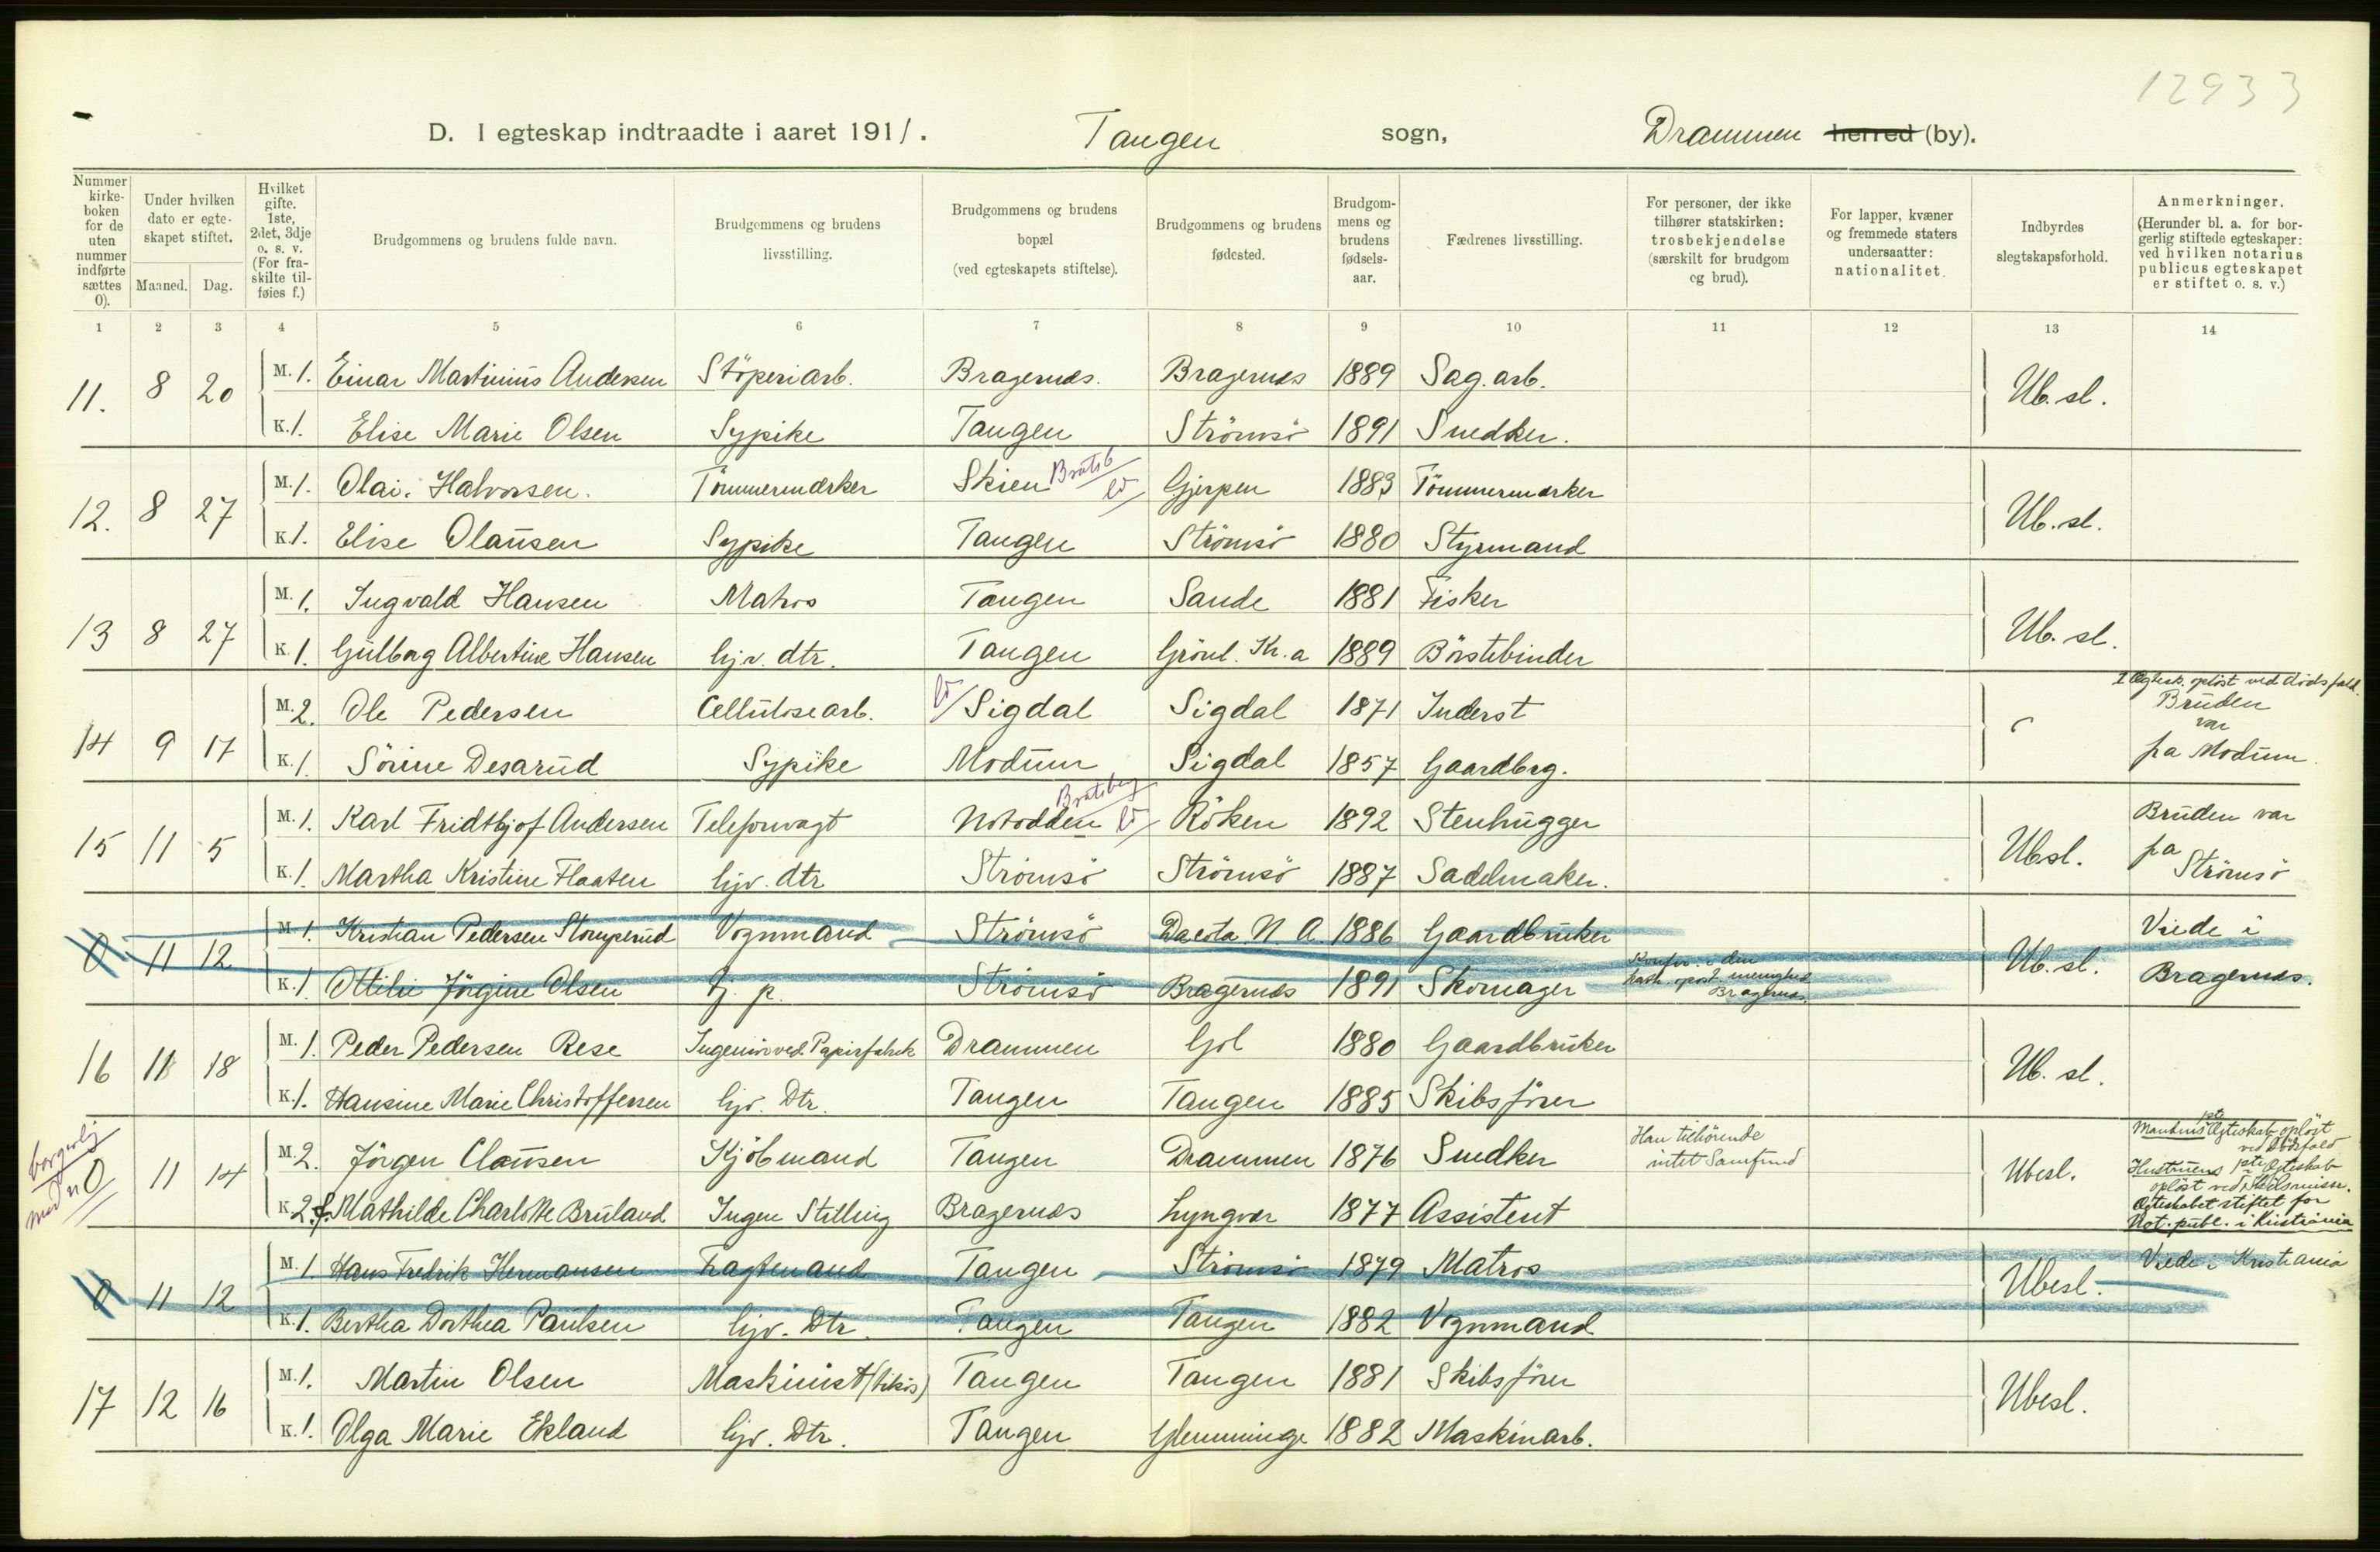 12933
D. I egteskap indtraadte i aaret 1911. Tangen sogn, Drammen herred (by).
Nummer kirke-boken for de uten nummer indførte sættes 0).
Under hvilken dato er egte-skapet stiftet.
Maaned. Dag.
Hvilket gifte. 1ste, 2det, 3dje o. s. v. (For fra-skilte til-føies f.)
Brudgommens og brudens fulde navn.
Brudgommens og brudens livsstilling.
Brudgommens og brudens bopæl (ved egteskapets stiftelse).
Brudgommens og brudens fødested.
Brudgom-mens og brudens fødsels-aar.
Fædrenes livsstilling.
For personer, der ikke tilhører statskirken: trosbekjendelse (særskilt for brudgom og brud).
For lapper, kvæner og fremmede staters undersaatter: nationalitet.
Indbyrdes slegtskapsforhold.
Anmerkninger. (Herunder bl. a. for bor-gerlig stiftede egteskaper: ved hvilken notarius publicus egteskapet er stiftet o. s. v.)
1 2 3 4 5 6 7 8 9 10 11 12 13 14
11. 8 20 M. 1. Einar Martinius Andersen Støperiarb. Bragernes. Bragernes 1889 Sag.arb. Ub. sl.
K. 1. Elise Marie Olsen Sypike Tangen Strömsö 1891 Snedker.
12. 8 27 M. 1. Olai Halvorsen. Tömmermærker Skien Bratsb Gjerpen 1883 Tömmermærker Ub. sl.
K. 1. Elise Olausen Sypike Tangen Strömsö 1880 Styrmand
13 8 27 M. 1. Ingvald Hansen Matros Tangen Sande 1881 Fisker Ub. sl.
K. 1. Gulborg Albertine Hansen hjv. dtr. Tangen Grönl. Kr.a 1889 Börstebinder
14 9 17 M. 2. Ole Pedersen Cellulosearb. Sigdal Sigdal 1871 Inderst 1 Ægtesk. opløst ved dødsfald. Bruden var
K. 1. Sörine Desarud Sypike Modum Sigdal 1857 Gaardbrg. pa Modum.
15 11 5 M. 1. Karl Fridthjof Andersen Telefonvagt Notodden Bratsberg Röken 1892 Stenhugger Ubsl. Bruden var
K. 1. Martha Kristine Flaaten hjv. dtr Strömsö Strömsö 1887 Sadelmaker. pa Strömsö
0 11 12 M. 1. Kristian Pedersen Stomperud Vognmand Strömsö Dacota N. A. 1886 Gaardbruker Ub. sl. Viede i
K. 1. Ottilie Jörgine Olsen Hj. p. Strömsö Bragernes 1891 Skomager Konfir. i den kath. apost. menighed Bragernes. Bragernes.
16 11 18 M. 1. Peder Pedersen Rese Ingeniör ved Papirfabrik Drammen Gol 1880 Gaardbruker Ub. sl.
K. 1. Hansine Marie Christoffersen hjv. Dtr. Tangen Tangen 1885 Skibsförer
borgerlig
med n 0 11 14 M. 2. Jörgen Clausen Kjöbmand Tangen Drammen 1876 Snedker Han tilhörende intet Samfund Ubesl. Mandens 1ste Ægteskab opløst ved Dödsfald
K. 2 f. Mathilde Charlotte Bruland Ingen Stilling Bragernes Lyngør 1877 Assistent Hustruens 1ste Ægteskab opløst ved Skilsmisse. Ægteskabet stiftet for Not. publ. i Kristiania
0 11 12 M. 1. Hans Fredrik Hermansen Fragtemand Tangen Strömsö 1879 Matros Ubesl. Viede i Kristiania
K. 1. Bertha Dorthea Paulsen hjv. Dtr. Tangen Tangen 1882 Vognmand
17 12 16 M. 1. Martin Olsen Maskinist (tilsös) Tangen Tangen 1881 Skibsförer Ubesl.
K. 1. Olga Marie Ekland hjv. Dtr. Tangen Glemminge 1882 Maskinarb.